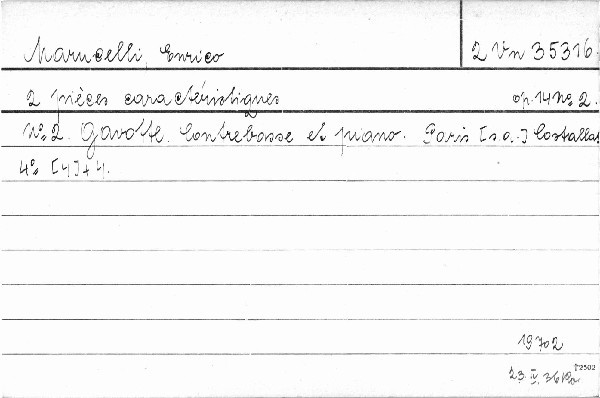 Marucelli, Enrico 2 Vn 35316.
2 pièces caractéristiques op. 14 No 2.
No 2. Gavotte. Contrebasse et piano. Paris [s.a.] Costallat
4o. [4]+4.
19702
23. IV. 36
T2502